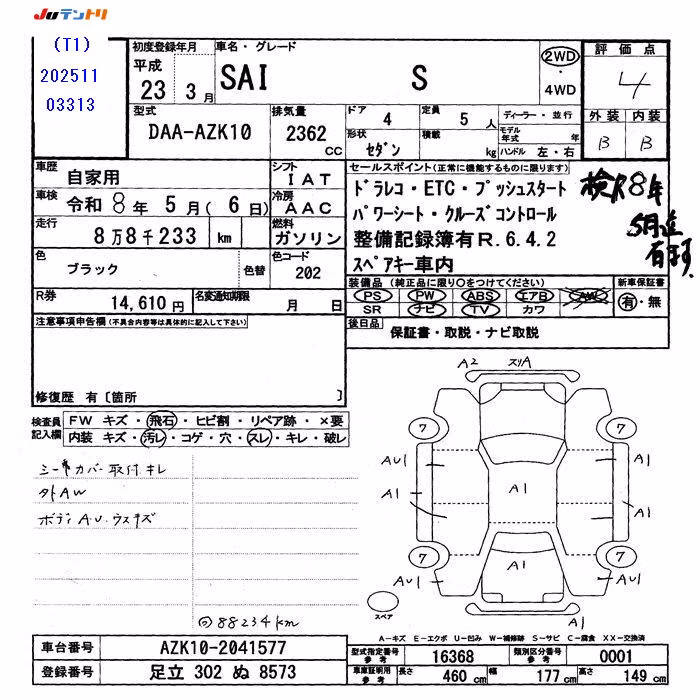 JUテントリ
(T1)
202511
03313
初度登録年月
平成
23 3月
車名・グレード
SAI S
2WD
・
4WD
評価点
4
外装 内装
B B
型式
DAA-AZK10
排気量
2362 CC
ドア 4
定員 5 人
形状 セダン
積載 kg
ディーラー・並行
モデル年式 年
ハンドル 左・右
車歴 自家用
シフト IAT
車検 令和 8年 5月( 6日)
冷房 AAC
走行 8万8千233 km
燃料 ガソリン
色 ブラック 色替
色コード 202
R券 14,610円
名変通知期限 月 日
セールスポイント(正常に機能するものに限ります)
ドラレコ・ETC・プッシュスタート
パワーシート・クルーズコントロール
整備記録簿有R.6.4.2
スペアキー車内
検R8年
5月迄
有ます、
装備品 (純正品に限り○をつけてください)
PS PW ABS エアB AW
SR ナビ TV カワ
新車保証書
有・無
後日品 保証書・取説・ナビ取説
注意事項申告欄(不具合内容等は具体的に記入して下さい)
修復歴 有〔箇所 〕
検査員記入欄
FW キズ・飛石・ヒビ割・リペア跡・×要
内装 キズ・汚レ・コゲ・穴・スレ・キレ・破レ
シートカバー取付キレ
外AW
ボディA.U.ウスキズ
◎88234km
A2 スリA
7 7
AU1 A1
A1 A1 A1
7 7
AU1 A1 AU1
A1
スペア
A-キズ E-エクボ U-凹み W-補修跡 S-サビ C-腐食 XX-交換済
車台番号 AZK10-2041577
登録番号 足立 302 ぬ 8573
型式指定番号 参考 16368
類別区分番号 参考 0001
車庫証明用 参考
長さ 460 cm
幅 177 cm
高さ 149 cm